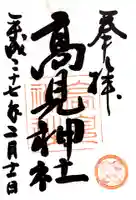 奉拝
高見神社
平成二十七年二月十一日